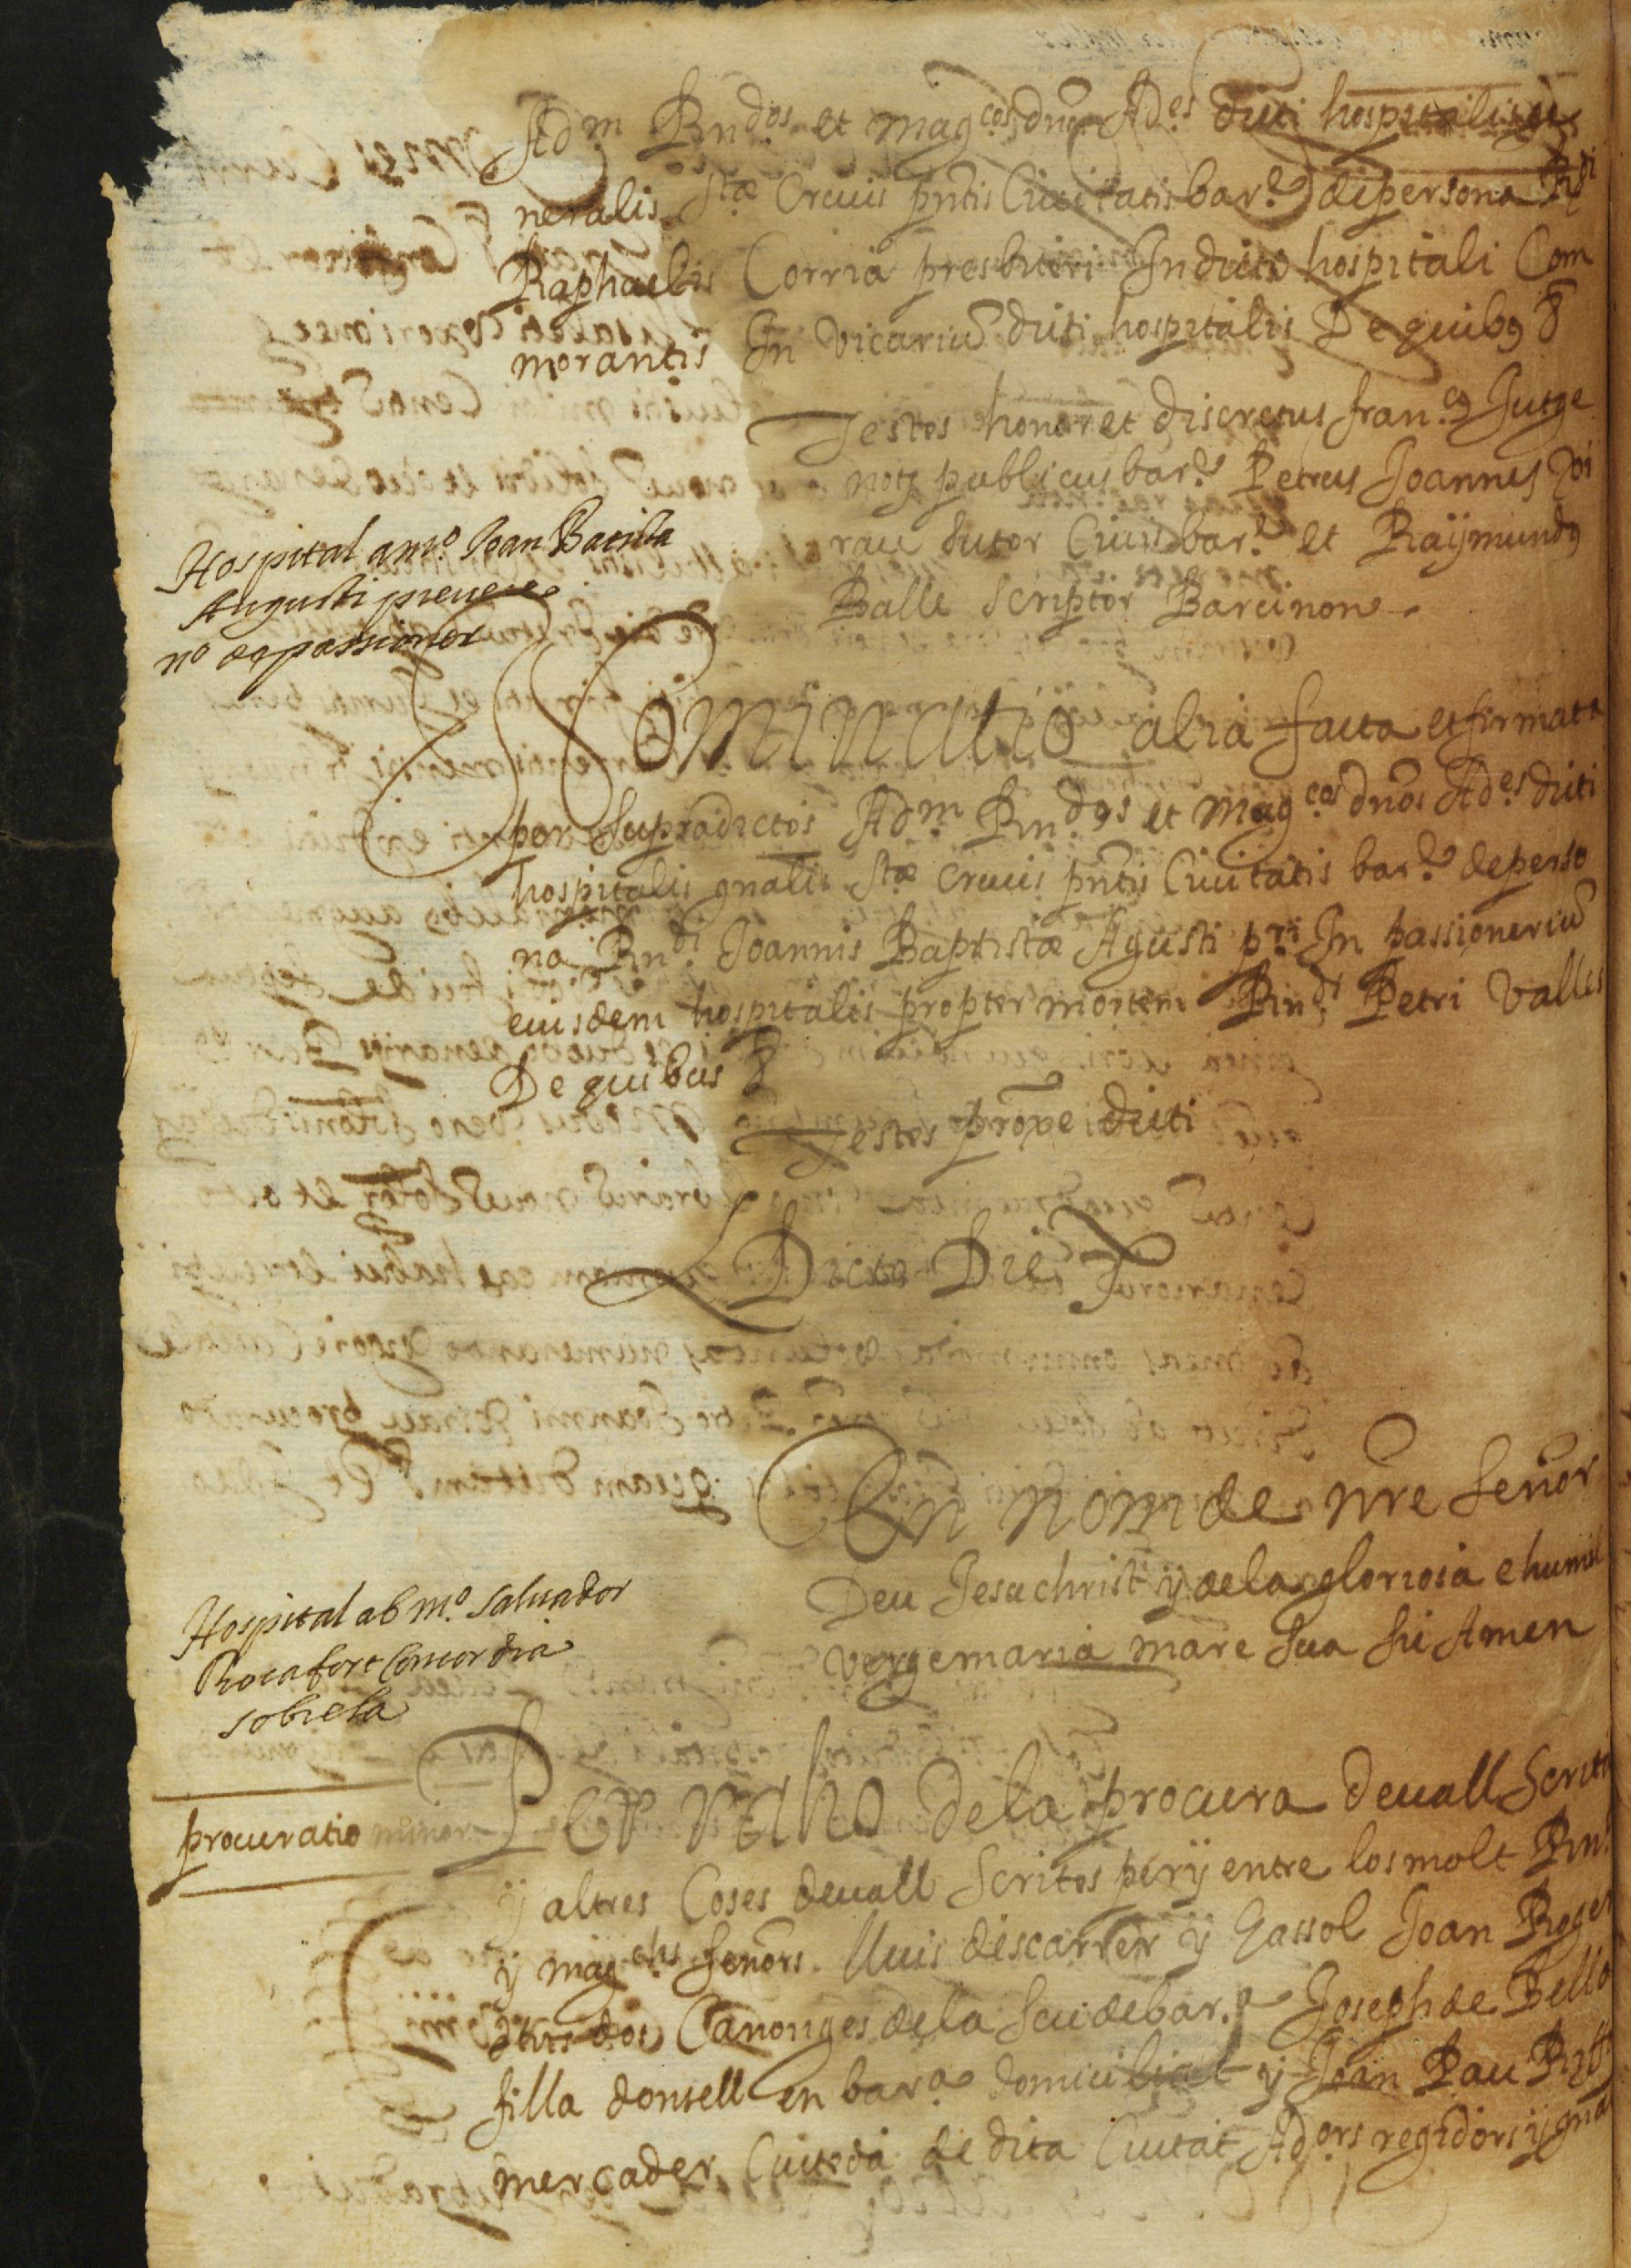 Adm Rndos et magcos dnos Ades dicti hospitalis ge
neralis Stæ Crucis pntis Civitatis bar.e de persona Rdi
Raphaelis Corria presbiteri In dicto hospitali Com
morantis In vicariu dicti hospitalis De quibq &
Testes honor et discretus fran.cq Jutge
notz publicus bar.e Petrus Joannes Vi
rau sutor Civis bar.e et Raÿmundq
Balle scriptor Barcinone
Hospital a mo. Joan Batista
Augusti prevere
no de passioner
Nominatio alia facta et firmata
per supradictos Adm Rndos et Magcos dnos Ades dicti
hospitalis gnalis Stæ Crucis pntis Civitatis bar.e de perso
na Rndi Joannis Baptistæ Agusti pri In passioneriu
eiusdem hospitalis propter mortem Rndi Petri Valles
De quibus &
Testes prope dicti
Dicto Die
En nom de nre Señor
Deu Jesuchrist ÿ de la gloriosa e humil
verge maria mare sua sie Amen
Hospital ab mo. Salvador
Rocafort Concordia
sobre la
Per raho de la procura devall Scrita
procuratio
ÿ altres Coses devall Scrites per ÿ entre los molt Rnt
ÿ magchs señors. lluis descarrer ÿ Gassol Joan Roger
dos Canonges de la Seu de bar.a Joseph de Bella
filla donsell en bar.a domiciliat ÿ Joan Pau
mercader Ciutedà de dita Ciutat Ad.ors regidors ÿ gnal